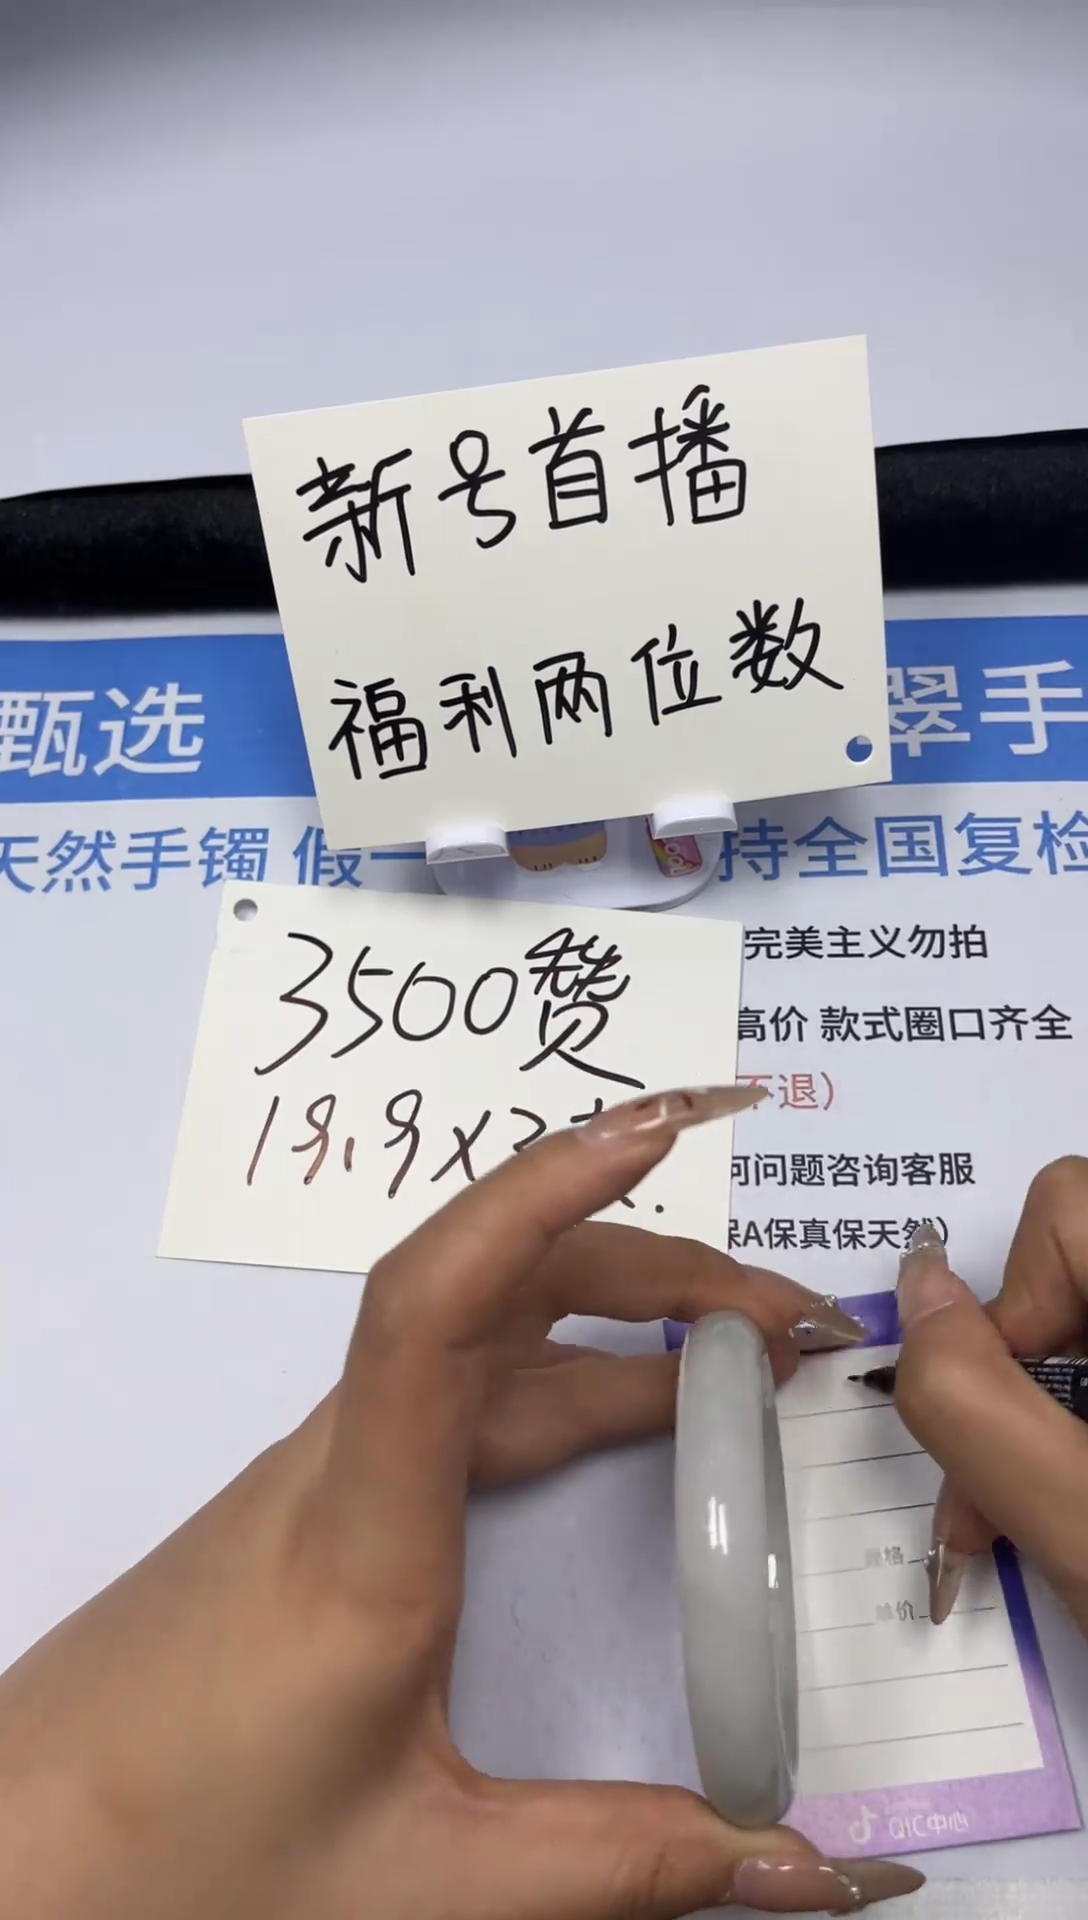 新号首播
福利两位数
甄选
翠手
天然手镯 假一
持全国复检
完美主义勿拍
高价 款式圈口齐全
不退）
何问题咨询客服
保A保真保天然）
3500赞
19.9x
单价
QIC中心